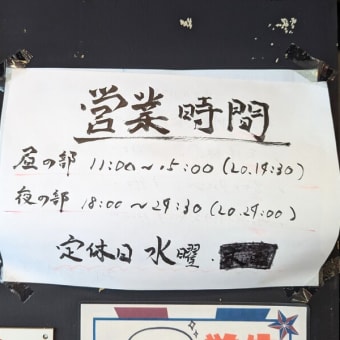 営業時間
昼の部 11:00〜15:00(L.O.14:30)
夜の部 18:00〜24:30(L.O.24:00)
定休日 水曜・